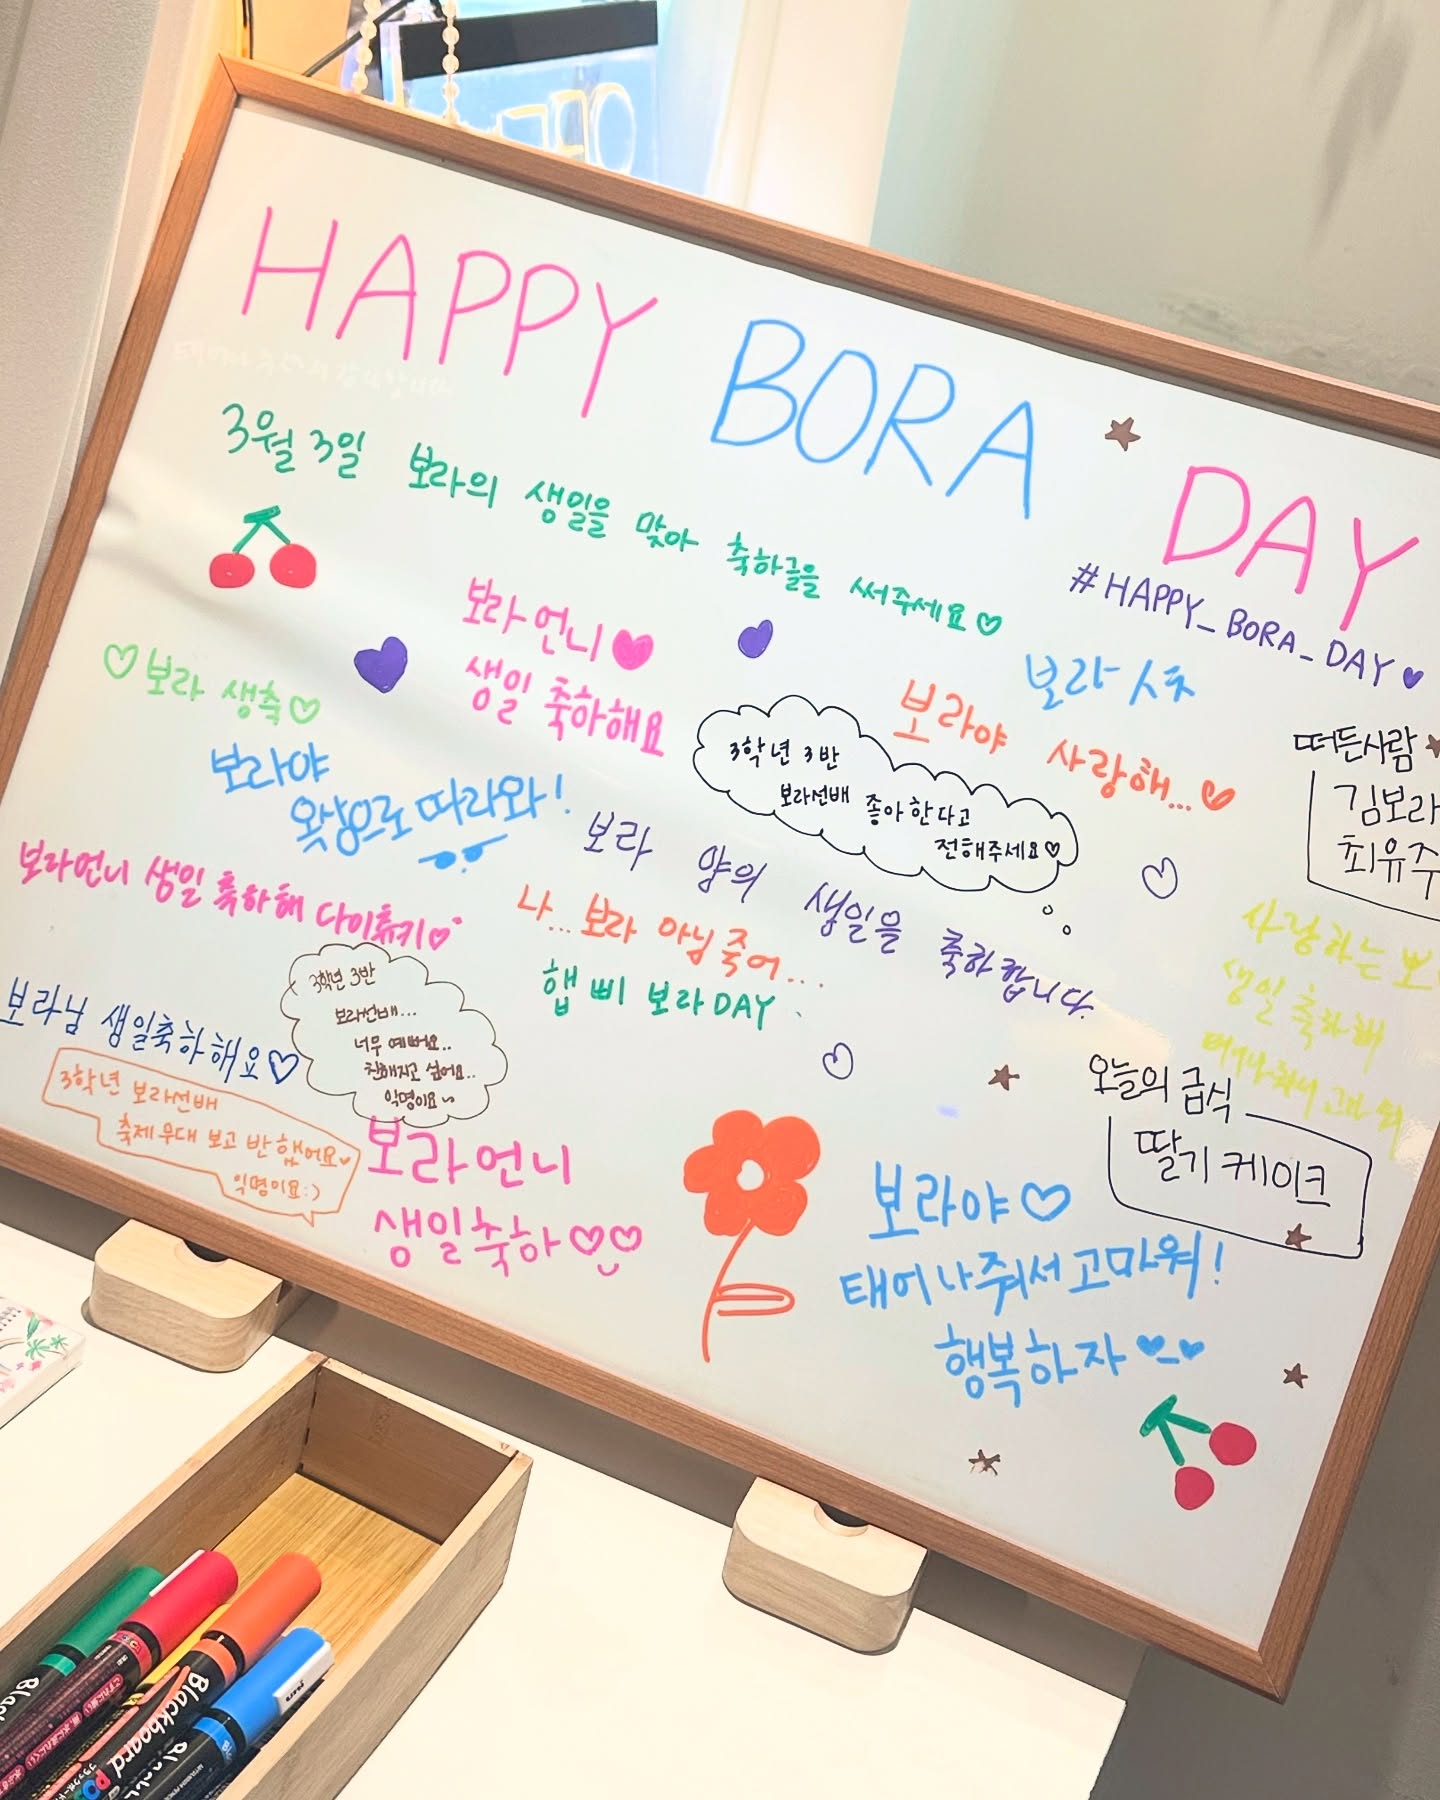 HAPPY BORA DAY
#HAPPY_BORA_DAY
3월 3일 보라의 생일을 맞아 축하글을 써주세요♡
보라언니♥
생일 축하해요
♡보라 생축♡
보라야
옥상으로 따라와!
3학년 3반
보라선배 좋아한다고
전해주세요♡
보라야 사랑해...♡
떠든사람
김보라
최유주
보라 양의 생일을 축하합니다.
보라언니 생일 축하해
나... 보라 아님 죽어...
햅삐 보라DAY
보라님 생일축하해요♡
3학년 3반
보라선배...
너무 예뻐요..
친해지고 싶어요..
익명이요
3학년 보라선배
축제 무대 보고 반했어요♥
익명이요:)
보라언니
생일축하♡♡
사랑하는
생일 축하해
태어나줘서
오늘의 급식
딸기 케이크
보라야♡
태어나줘서 고마워!
행복하자♥_♥
Blackboard